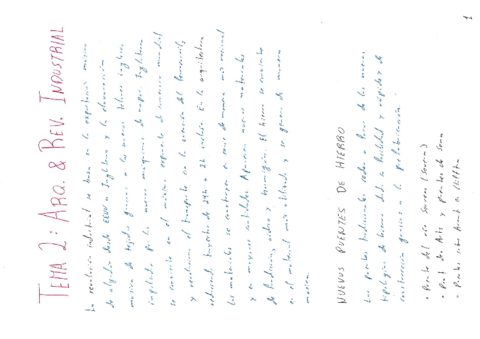 TEMA 2: ARQ. & REV. INDUSTRIAL
La revolución industrial se basa en la exportación masiva
de algodón desde EEUU a Inglaterra y la elaboración
masiva de tejidos gracias a los nuevos telares ingleses
impulsados por las nuevas máquinas de vapor. Inglaterra
se convierte en el máximo exponente de comercio mundial
y revoluciona el transporte con la creación del ferrocarril,
reduciendo trayectos de 24h a 2h incluso. En la arquitectura
los materiales se construyen en serie de manera más racional
y en mayores cantidades. Aparecen nuevos materiales
de fundición, vidrio y hormigón. El hierro se convierte
en el material más utilizado y se genera de manera
masiva.
NUEVOS PUENTES DE HIERRO
Los puentes tradicionales ceden a favor de las nuevas
tipologías de hierro dada su facilidad y rapidez de
construcción gracias a la prefabricación.
• Puente del río Severn (Severn)
• Pont des Arts y puentes de Sena
• Puentes sobre
1